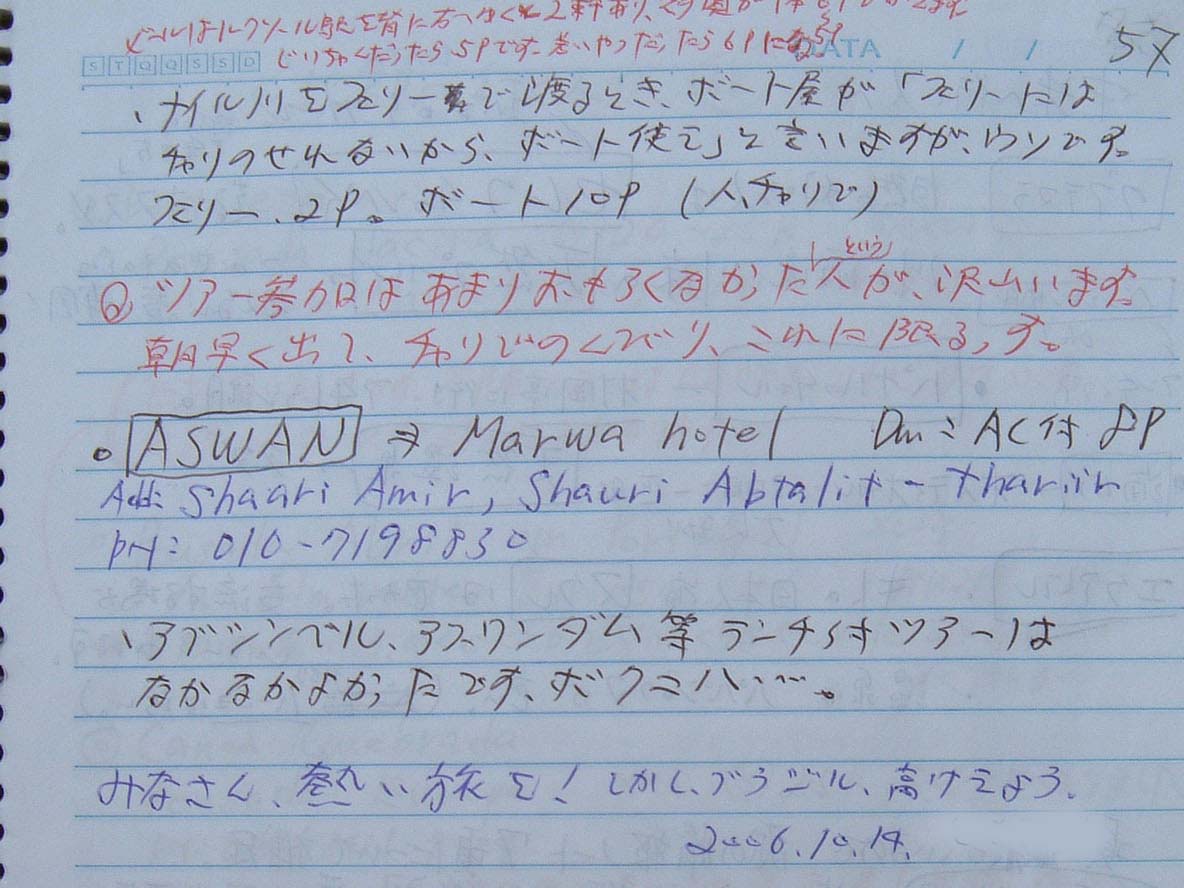 ビールはルクソール駅を背に右へ行くと2軒あり、
じいちゃんだったら5Pです。若いやつだったら6Pになる
S T Q Q S S D
DATA / /
57
、ナイル川をフェリーで渡るとき、ボート屋が「フェリーには
チャリのせれないから、ボート使え」と言いますが、ウソです。
フェリー、2P。ボート10P (人、チャリで)
という
◎ツアー参加はあまりおもろくなかった人が、沢山います。
朝早く出て、チャリでのくびり、これに限るっす。
○ ASWAN ⇒ Marwa hotel Dm: AC付 8P
Add: Shaari Amir, Shauri Abtalit-thariir
PH: 010-7198830
、アブシンベル、アスワンダム等ランチ付ツアーは
なかなかよかったです、ボクニハ…。
みなさん、熱い旅を! しかし、ブラジル、高けえよう。
2006.10.14.